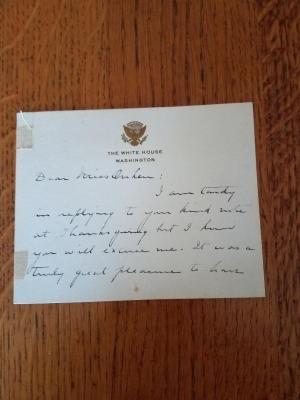 THE WHITE HOUSE
WASHINGTON
Dear Miss :
I am tardy
in replying to your kind note
at Thanksgiving but I know
you will excuse me. It was a
truly great pleasure to have